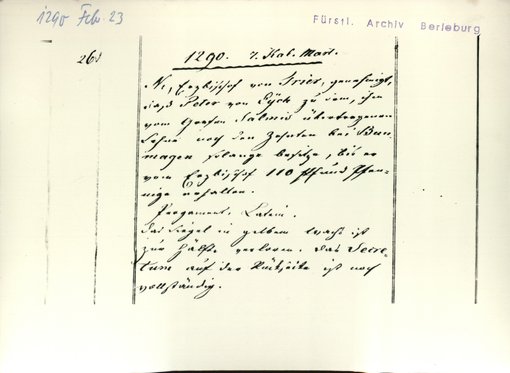 1290 Febr 23
Fürstl. Archiv Berleburg
261
1290. 7. Kal. Mart.
N., Erzbischof von Trier, genehmigt,
daß Peter von Eyck zu dem, ihm
vom Grafen Salmis übertragenen
Lehne noch den Zehnten bei
solange besitze, bis er
vom Erzbischof 110 Pfund Pfen-
nige erhalten.
Pergament. Latein.
Das Siegel in gelbem Wachs ist
zur Hälfte verloren. Das Secre-
tum auf der Rückseite ist noch
vollständig.